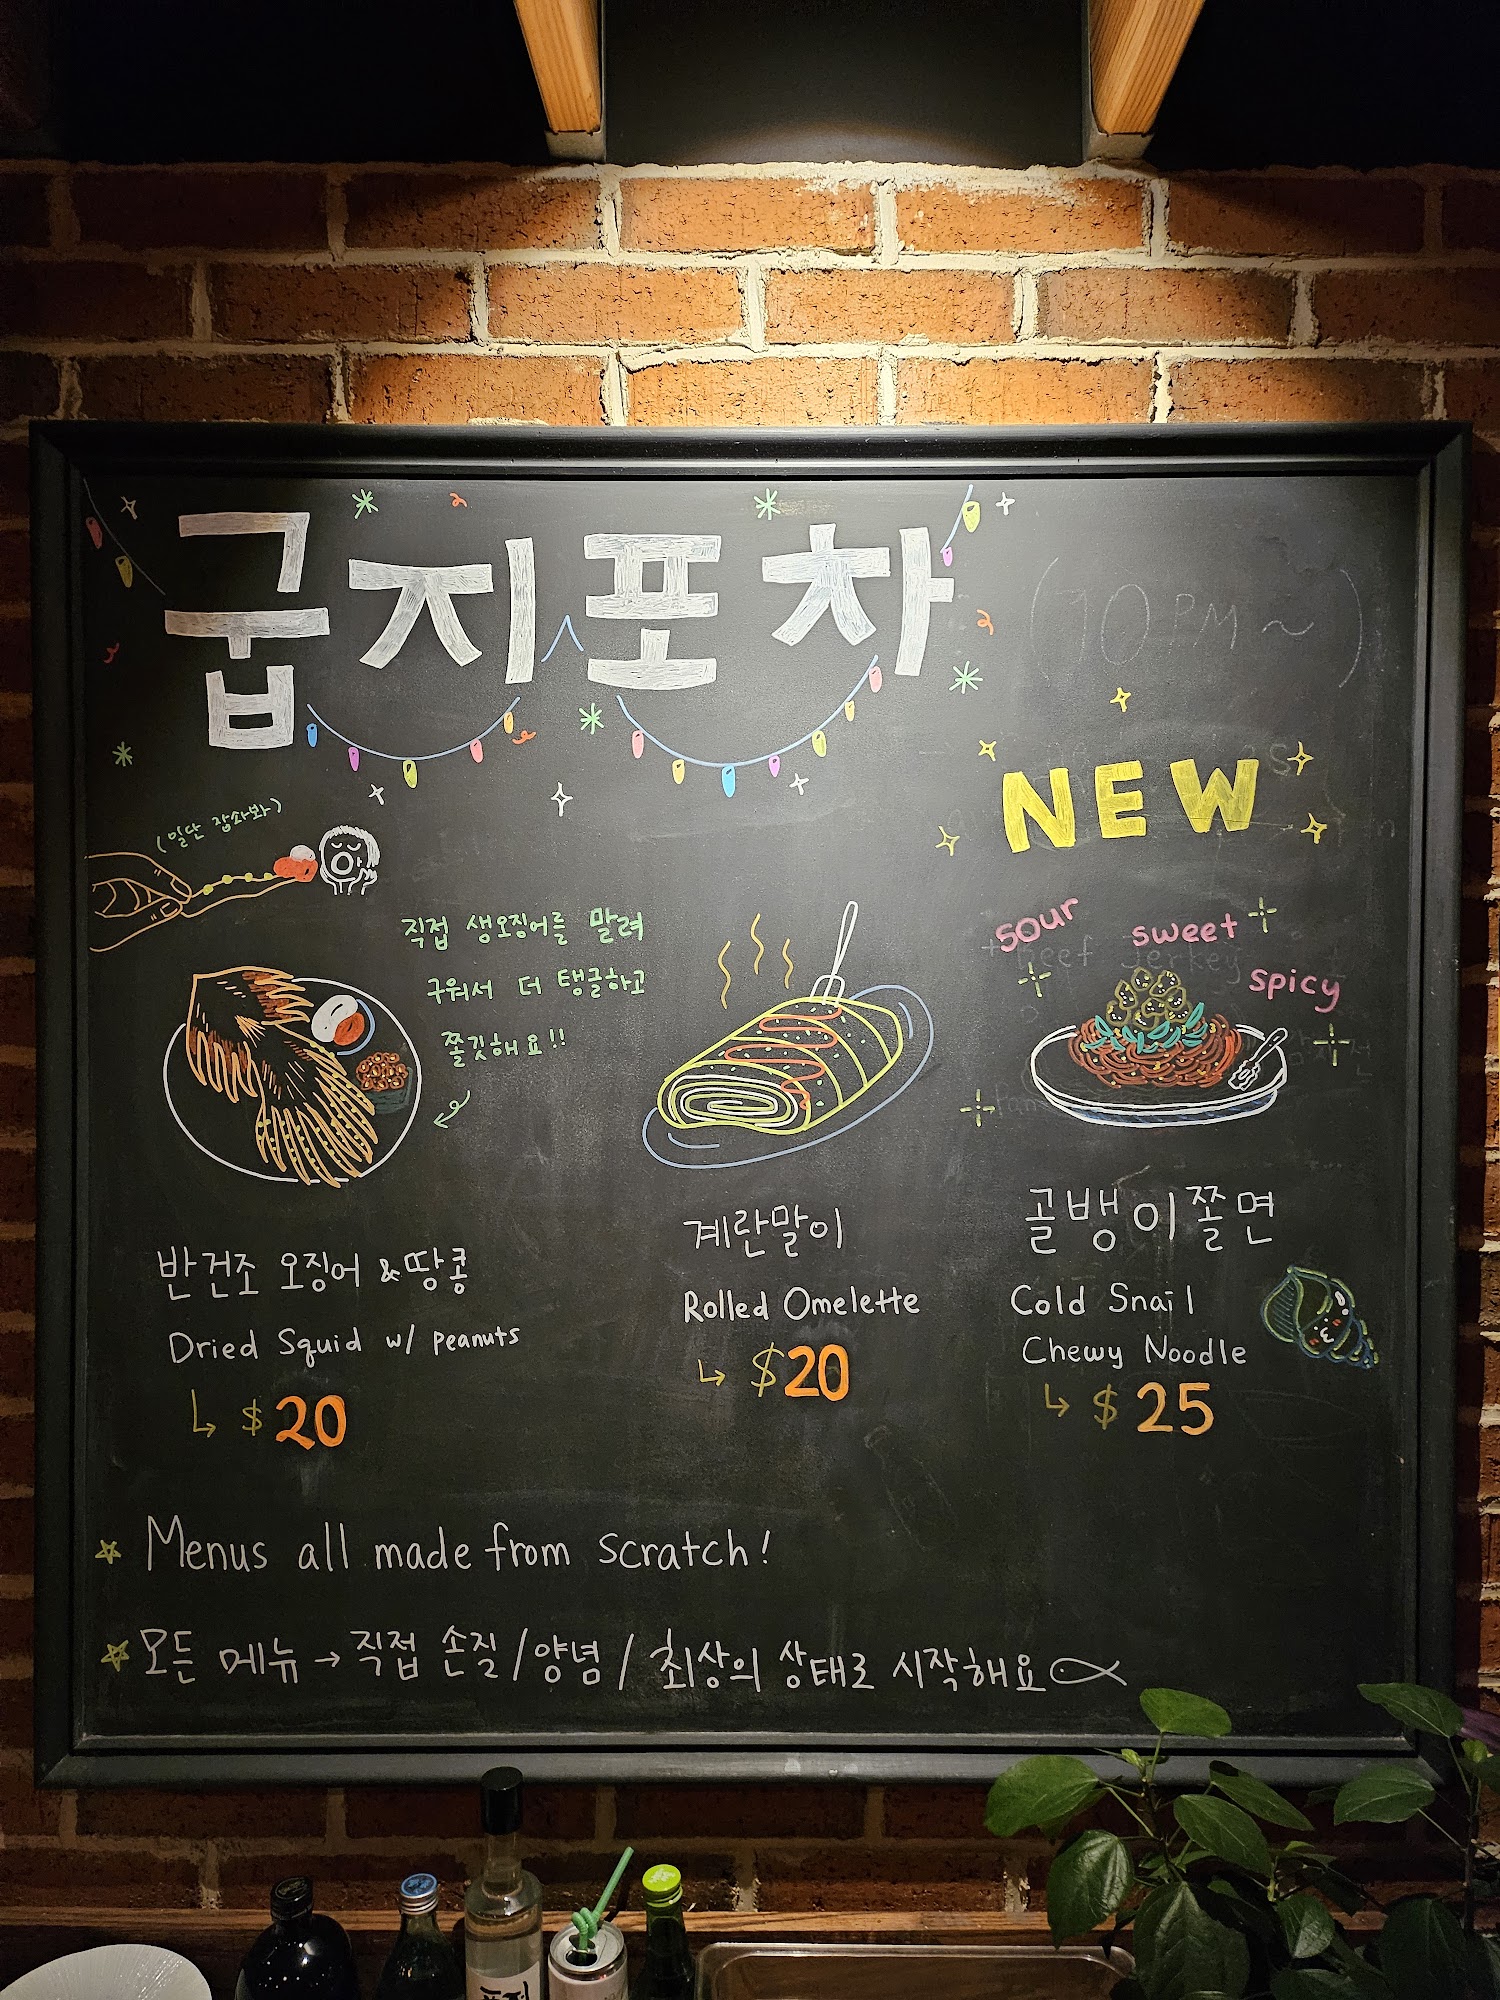 굽지포차
(10PM~)
NEW
(일단 잡솨봐)
직접 생오징어를 말려
구워서 더 탱글하고
쫄깃해요!!
sour
sweet
spicy
반건조 오징어 & 땅콩
Dried Squid w/ peanuts
↳ $20
계란말이
Rolled Omelette
↳ $20
골뱅이쫄면
Cold Snail
Chewy Noodle
↳ $25
☆ Menus all made from scratch!
☆ 모든 메뉴 → 직접 손질/양념/ 최상의 상태로 시작해요